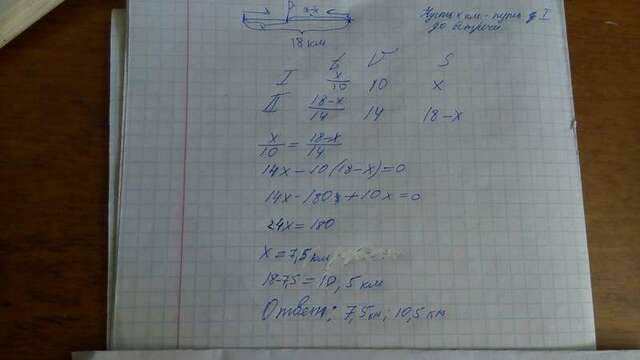 18-x
Пусть x км - путь I
до встречи
18 км
t V S
I x/10 10 x
II 18-x/14 14 18-x
x/10 = 18-x/14
14x - 10(18-x)=0
14x - 180 + 10x = 0
24x = 180
x = 7,5 км
18-7,5 = 10,5 км
Ответ: 7,5 км; 10,5 км